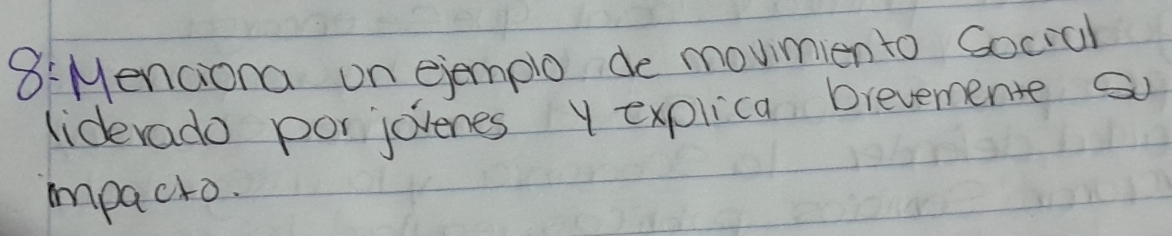 8: Menciona un ejemplo de movimiento social
liderado por jóvenes y explica brevemente su
impacto.